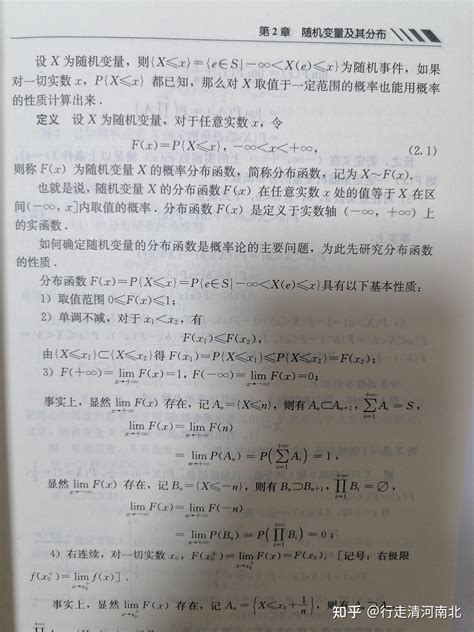 第2章 随机变量及其分布
设 X 为随机变量，则{X⩽x}={e∈S|−∞<X(e)⩽x}为随机事件，如果
对一切实数 x，P{X⩽x} 都已知，那么对 X 取值于一定范围的概率也能用概率
的性质计算出来．
定义 设 X 为随机变量，对于任意实数 x，令
F(x)=P{X⩽x}，−∞<x<+∞， (2.1)
则称 F(x) 为随机变量 X 的概率分布函数，简称分布函数，记为 X~F(x)．
也就是说，随机变量 X 的分布函数 F(x) 在任意实数 x 处的值等于 X 在区
间(−∞，x]内取值的概率．分布函数 F(x) 是定义于实数轴（−∞，+∞）上
的实函数．
如何确定随机变量的分布函数是概率论的主要问题，为此先研究分布函数
的性质．
分布函数 F(x)=P{X⩽x}=P{e∈S|−∞<X(e)⩽x}具有以下基本性质：
1) 取值范围 0⩽F(x)⩽1；
2) 单调不减，对于 x₁<x₂，有
F(x₁)⩽F(x₂)，
由{X⩽x₁}⊂{X⩽x₂}得 F(x₁)=P{X⩽x₁}⩽P{X⩽x₂}=F(x₂)；
3) F(+∞)=lim_{x→+∞}F(x)=1，F(−∞)=lim_{x→−∞}F(x)=0；
事实上，显然 lim_{x→+∞}F(x) 存在，记 Aₙ={X⩽n}，则有 Aₙ⊂Aₙ₊₁，∑_{i=1}^{+∞}Aᵢ=S，
lim_{x→+∞}F(x)=lim_{n→+∞}F(n)
=lim_{n→+∞}P(Aₙ)=P(∑_{i=1}^{+∞}Aᵢ)=1，
显然 lim_{x→−∞}F(x) 存在，记 Bₙ={X⩽−n}，则有 Bₙ⊃Bₙ₊₁，∏_{i=1}^{+∞}Bᵢ=∅，
lim_{x→−∞}F(x)=lim_{n→+∞}F(−n)
=lim_{n→+∞}P(Bₙ)=P(∏_{i=1}^{+∞}Bᵢ)=0；
4) 右连续，对一切实数 x₀，F(x₀⁺)=lim_{x→x₀⁺}F(x)=F(x₀)．[记号：右极限
f(x₀⁺)=lim_{x→x₀⁺}f(x)]．
事实上，显然 lim_{x→x₀⁺}F(x) 存在，记 Aₙ={X⩽x₀+1/n}，则有
知乎 @行走清河南北